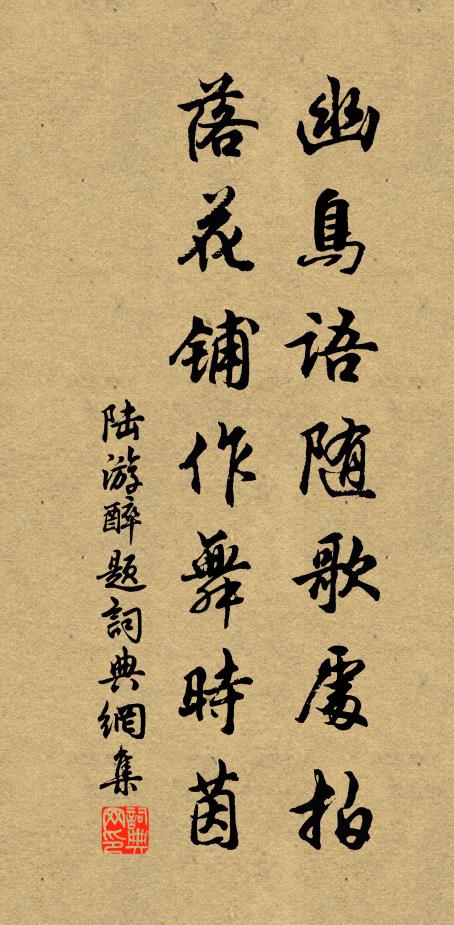 幽鳥語随歌處拍
落花鋪作舞時茵
陆游醉题詞典網集
詞典網印